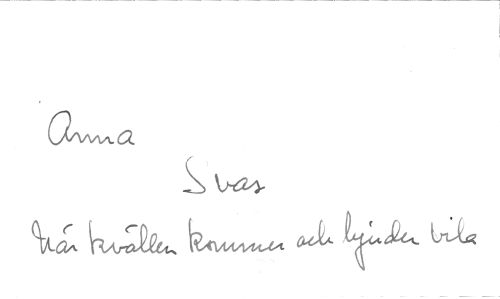 Anna
Svas
När kvällen kommer och bjuder vila